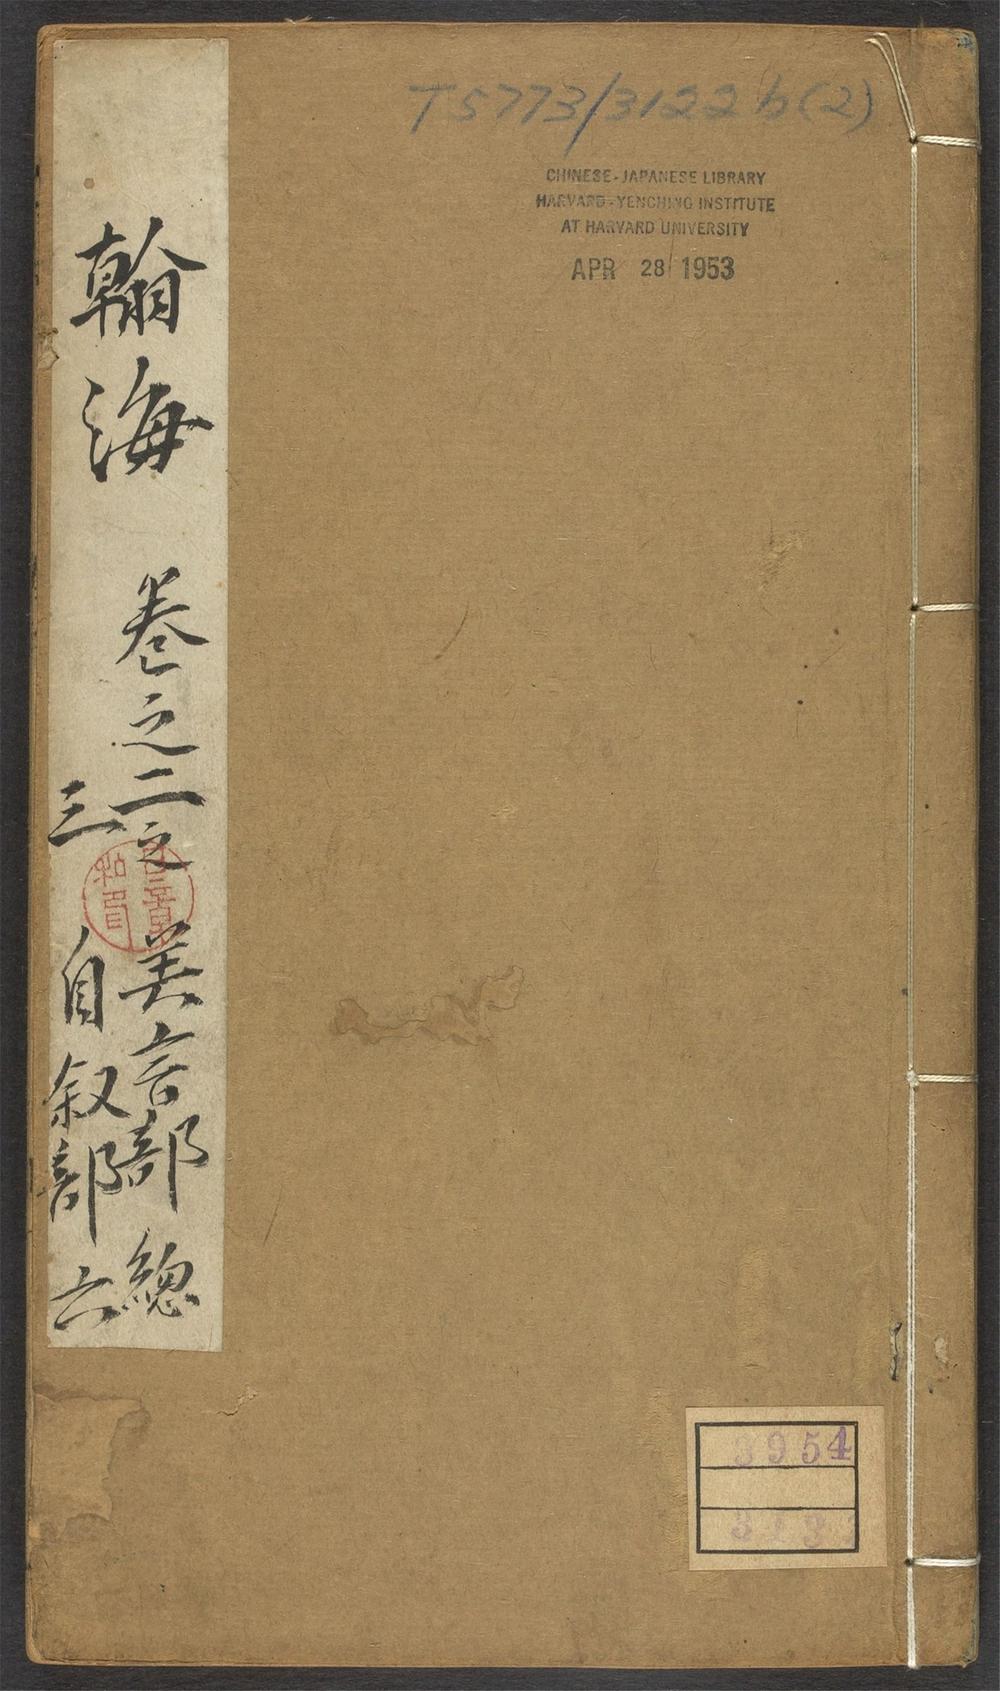 T5773/3122b(2)
CHINESE-JAPANESE LIBRARY
HARVARD-YENCHING INSTITUTE
AT HARVARD UNIVERSITY
APR 28 1953
翰海
卷之二之 美言部 總
三 自叙部 六
3954